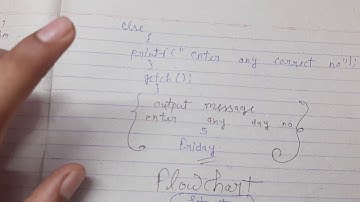 else
{
printf(" enter any correct no");
}
getch();
}
output message
enter any day no
5
Friday
Flowchart